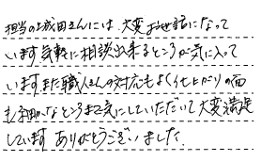 担当の成田さんには、大変お世話になって
います気軽に相談出来るところが気に入って
いますまた職人さんの対応もよく仕上がりの面
も細かなところまで気にしていただいて大変満足
しています ありがとうございました.